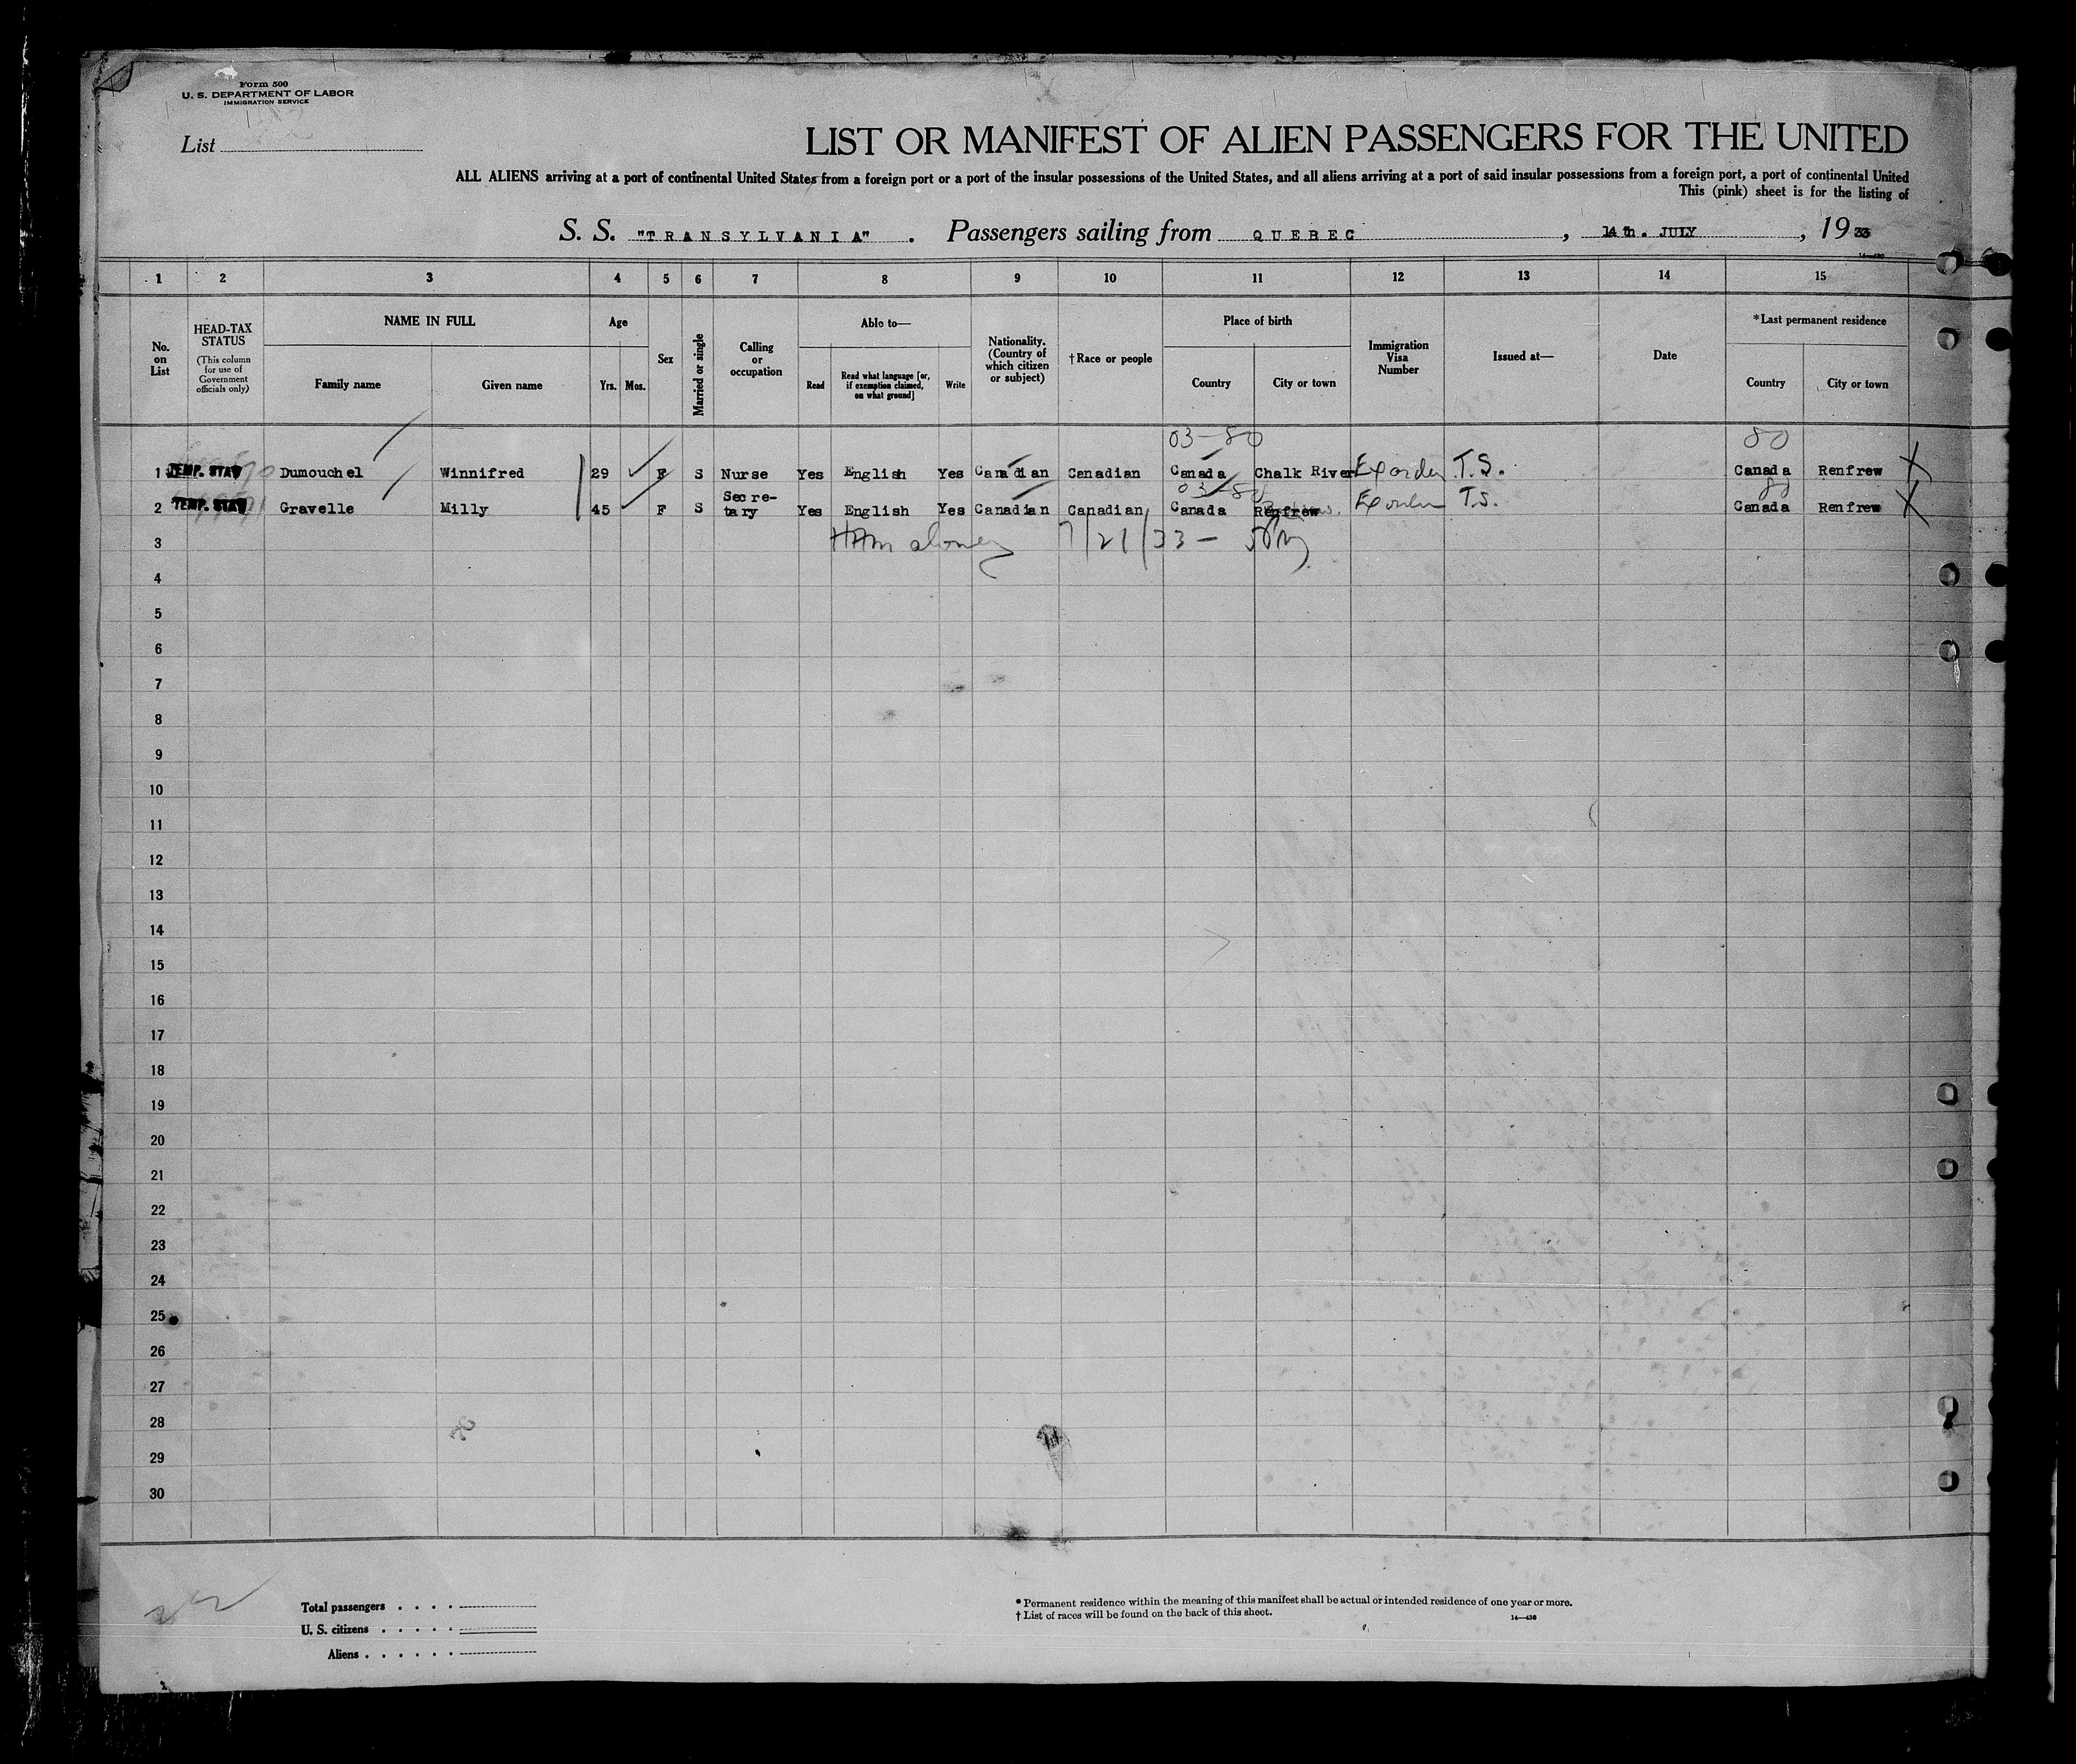 Form 500
U. S. DEPARTMENT OF LABOR
IMMIGRATION SERVICE
List
LIST OR MANIFEST OF ALIEN PASSENGERS FOR THE UNITED
ALL ALIENS arriving at a port of continental United States from a foreign port or a port of the insular possessions of the United States, and all aliens arriving at a port of said insular possessions from a foreign port, a port of continental United
This (pink) sheet is for the listing of
S. S. "TRANSYLVANIA" . Passengers sailing from QUEBEC , 14th. JULY , 1933
14—430
1 2 3 4 5 6 7 8 9 10 11 12 13 14 15
No. on List
HEAD-TAX STATUS (This column for use of Government officials only)
NAME IN FULL
Family name Given name
Age
Yrs. Mos.
Sex
Married or single
Calling or occupation
Able to—
Read Read what language [or, if exemption claimed, on what ground] Write
Nationality. (Country of which citizen or subject)
†Race or people
Place of birth
Country City or town
Immigration Visa Number
Issued at—
Date
*Last permanent residence
Country City or town
03-80 80
1 TEMP. STAY Dumouchel Winnifred 29 F S Nurse Yes English Yes Canadian Canadian Canada Chalk River Ex order T.S. Canada Renfrew X
03-80 80
2 TEMP. STAY Gravelle Milly 45 F S Secre-tary Yes English Yes Canadian Canadian Canada Renfrew Ex order T.S. Canada Renfrew X
3 7/21/33 -
4
5
6
7
8
9
10
11
12
13
14
15
16
17
18
19
20
21
22
23
24
25
26
27
28
29
30
Total passengers . . . .
U. S. citizens . . . . .
Aliens . . . . . .
* Permanent residence within the meaning of this manifest shall be actual or intended residence of one year or more.
† List of races will be found on the back of this sheet.
14—430